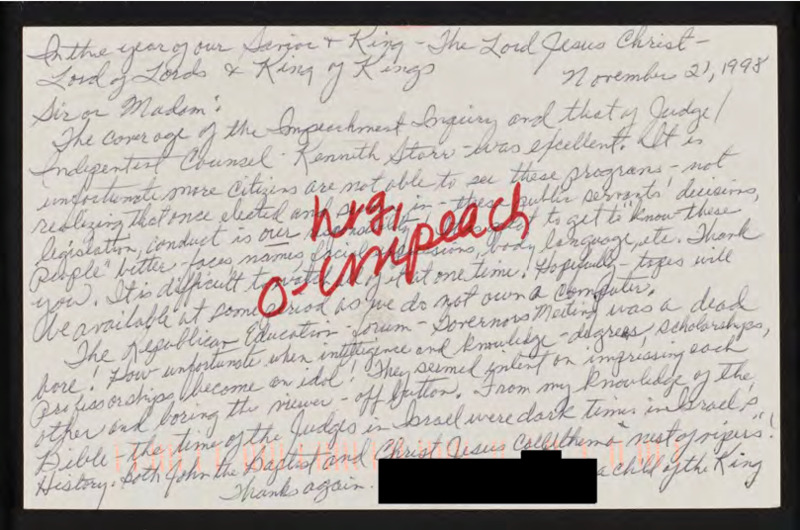 In the year of our Savior & King - The Lord Jesus Christ -
Lord of Lords & King of Kings
November 21, 1998
Sir or Madam:
The coverage of the Impeachment Inquiry and that of Judge/
Independent Counsel - Kenneth Starr - was excellent. It is
unfortunate more citizens are not able to see these programs - not
realizing that once elected and in - these public servants' decisions,
legislation, conduct is our to get to know these
people better - faces names facial body language, etc. Thank
you. It is difficult to watch all of it at one time! Hopefully - tapes will
be available at some period as we do not own a computer.
hrg,
o-impeach
The Republican Education - forum - Governors Meeting was a dead
bore! How unfortunate when intelligence and knowledge - degrees, scholarships,
Professorships, become an idol! They seemed intent on impressing each
other and boring the viewer - off button. From my knowledge of the
Bible - the time of the Judges in Israel were dark times in Israel's
History. Both John the Baptist and Christ Jesus called them a "nest of vipers"!
Thanks again. a child of the King